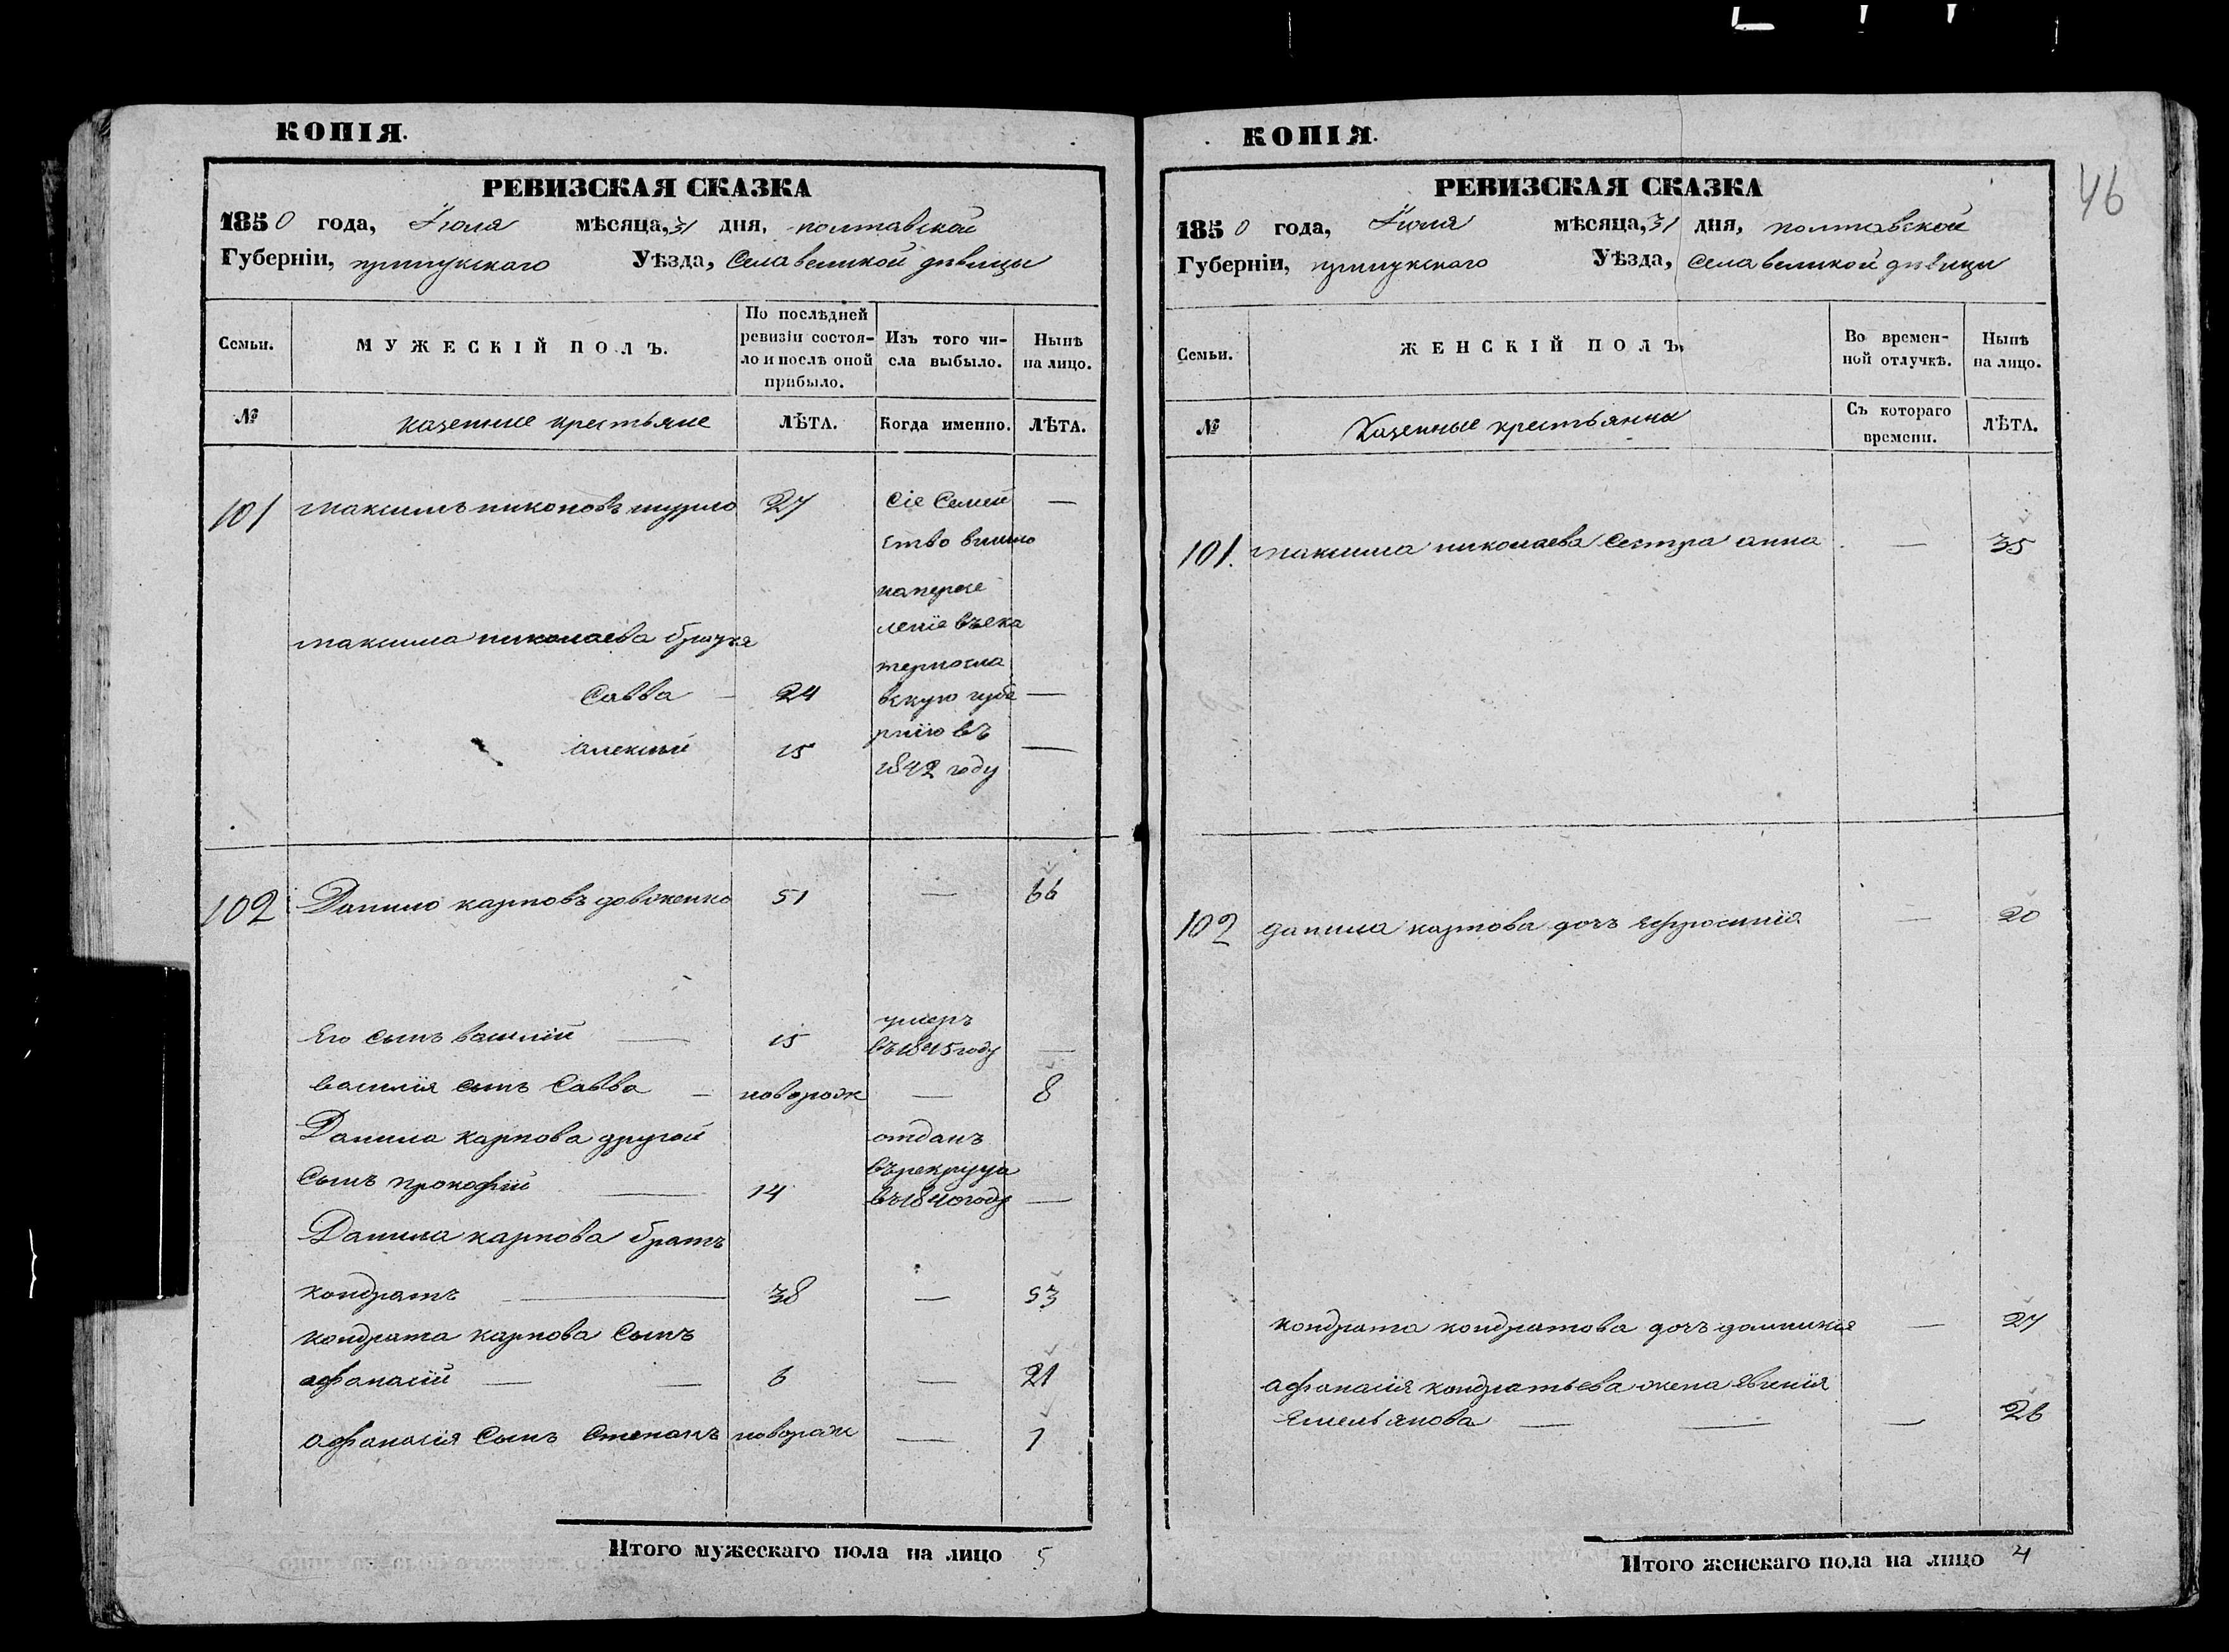 КОПІЯ.
РЕВИЗСКАЯ СКАЗКА
1850 года, Іюля мѣсяца, 31 дня, полтавской
Губерніи, прилукскаго Уѣзда, Села великой дѣвицы
Семьи.
МУЖЕСКІЙ ПОЛЪ.
По послѣдней
ревизіи состоя-
ло и послѣ оной
прибыло.
Изъ того чи-
сла выбыло.
Нынѣ
на лицо.
№
казенные крестьяне
ЛѢТА.
Когда именно.
ЛѢТА.
101 максимъ никоновъ 27 Сіе Семей —
ство
на пересе
леніе въ ека
теринosла
максима николаева братья
Савва — 24 вскую губе —
рнію въ
алексѣй 15 —
1842 году
102 Данило карповъ довженко 51 — 66
Его сынъ василій — 15 умеръ
въ 1845 году —
василія сынъ Савва — новорож — 8
Данила карпова другой отданъ
сынъ прокофій — 14 въ рекруты
въ 1840 году —
Данила карпова братъ
кондратъ — 38 — 53
кондрата карпова сынъ
афанасій — — 6 — 21
афанасія сынъ Степанъ новорож — 1
Итого мужескаго пола на лицо 5
КОПІЯ.
46
РЕВИЗСКАЯ СКАЗКА
1850 года, Іюля мѣсяца, 31 дня, полтавской
Губерніи, прилукскаго Уѣзда, Села великой дѣвицы
Семьи.
ЖЕНСКІЙ ПОЛЪ.
Во времен-
ной отлучкѣ.
Нынѣ
на лицо.
№
Казенные крестьянки
Съ котораго
времени.
ЛѢТА.
101. максима николаева Сестра анна — 35
102 данила карпова дочь Ефросинія — 20
кондрата кондратова дочь домникія — 27
афанасія кондратьева жена Евгенія
Емельянова — — — 26
Итого женскаго пола на лицо 4